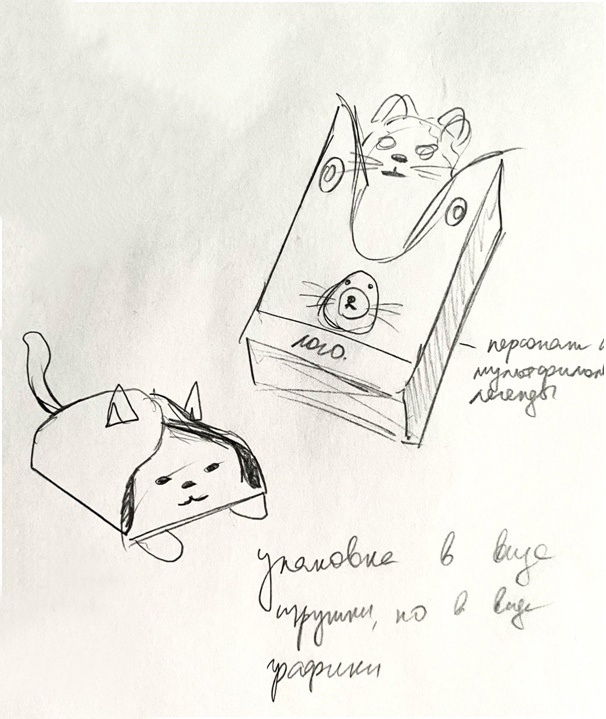 лого.
персонаж
мультфильм
легенды
упаковка в виде
игрушки, но в виде
графики